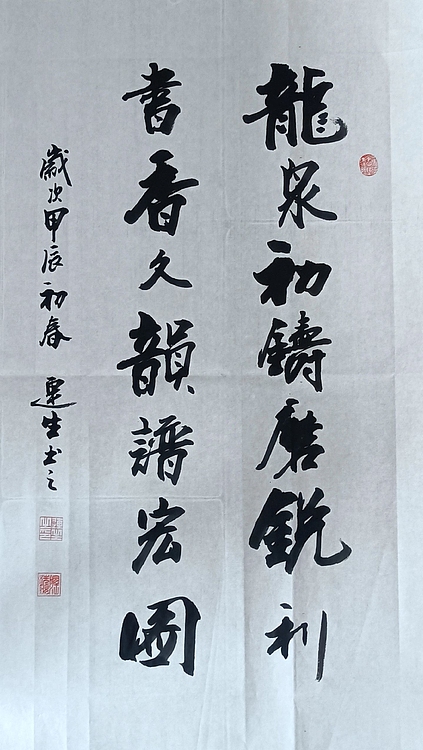 龍泉初鑄磨鋭利
書香久韻譜宏圖
歲次甲辰初春 生书之